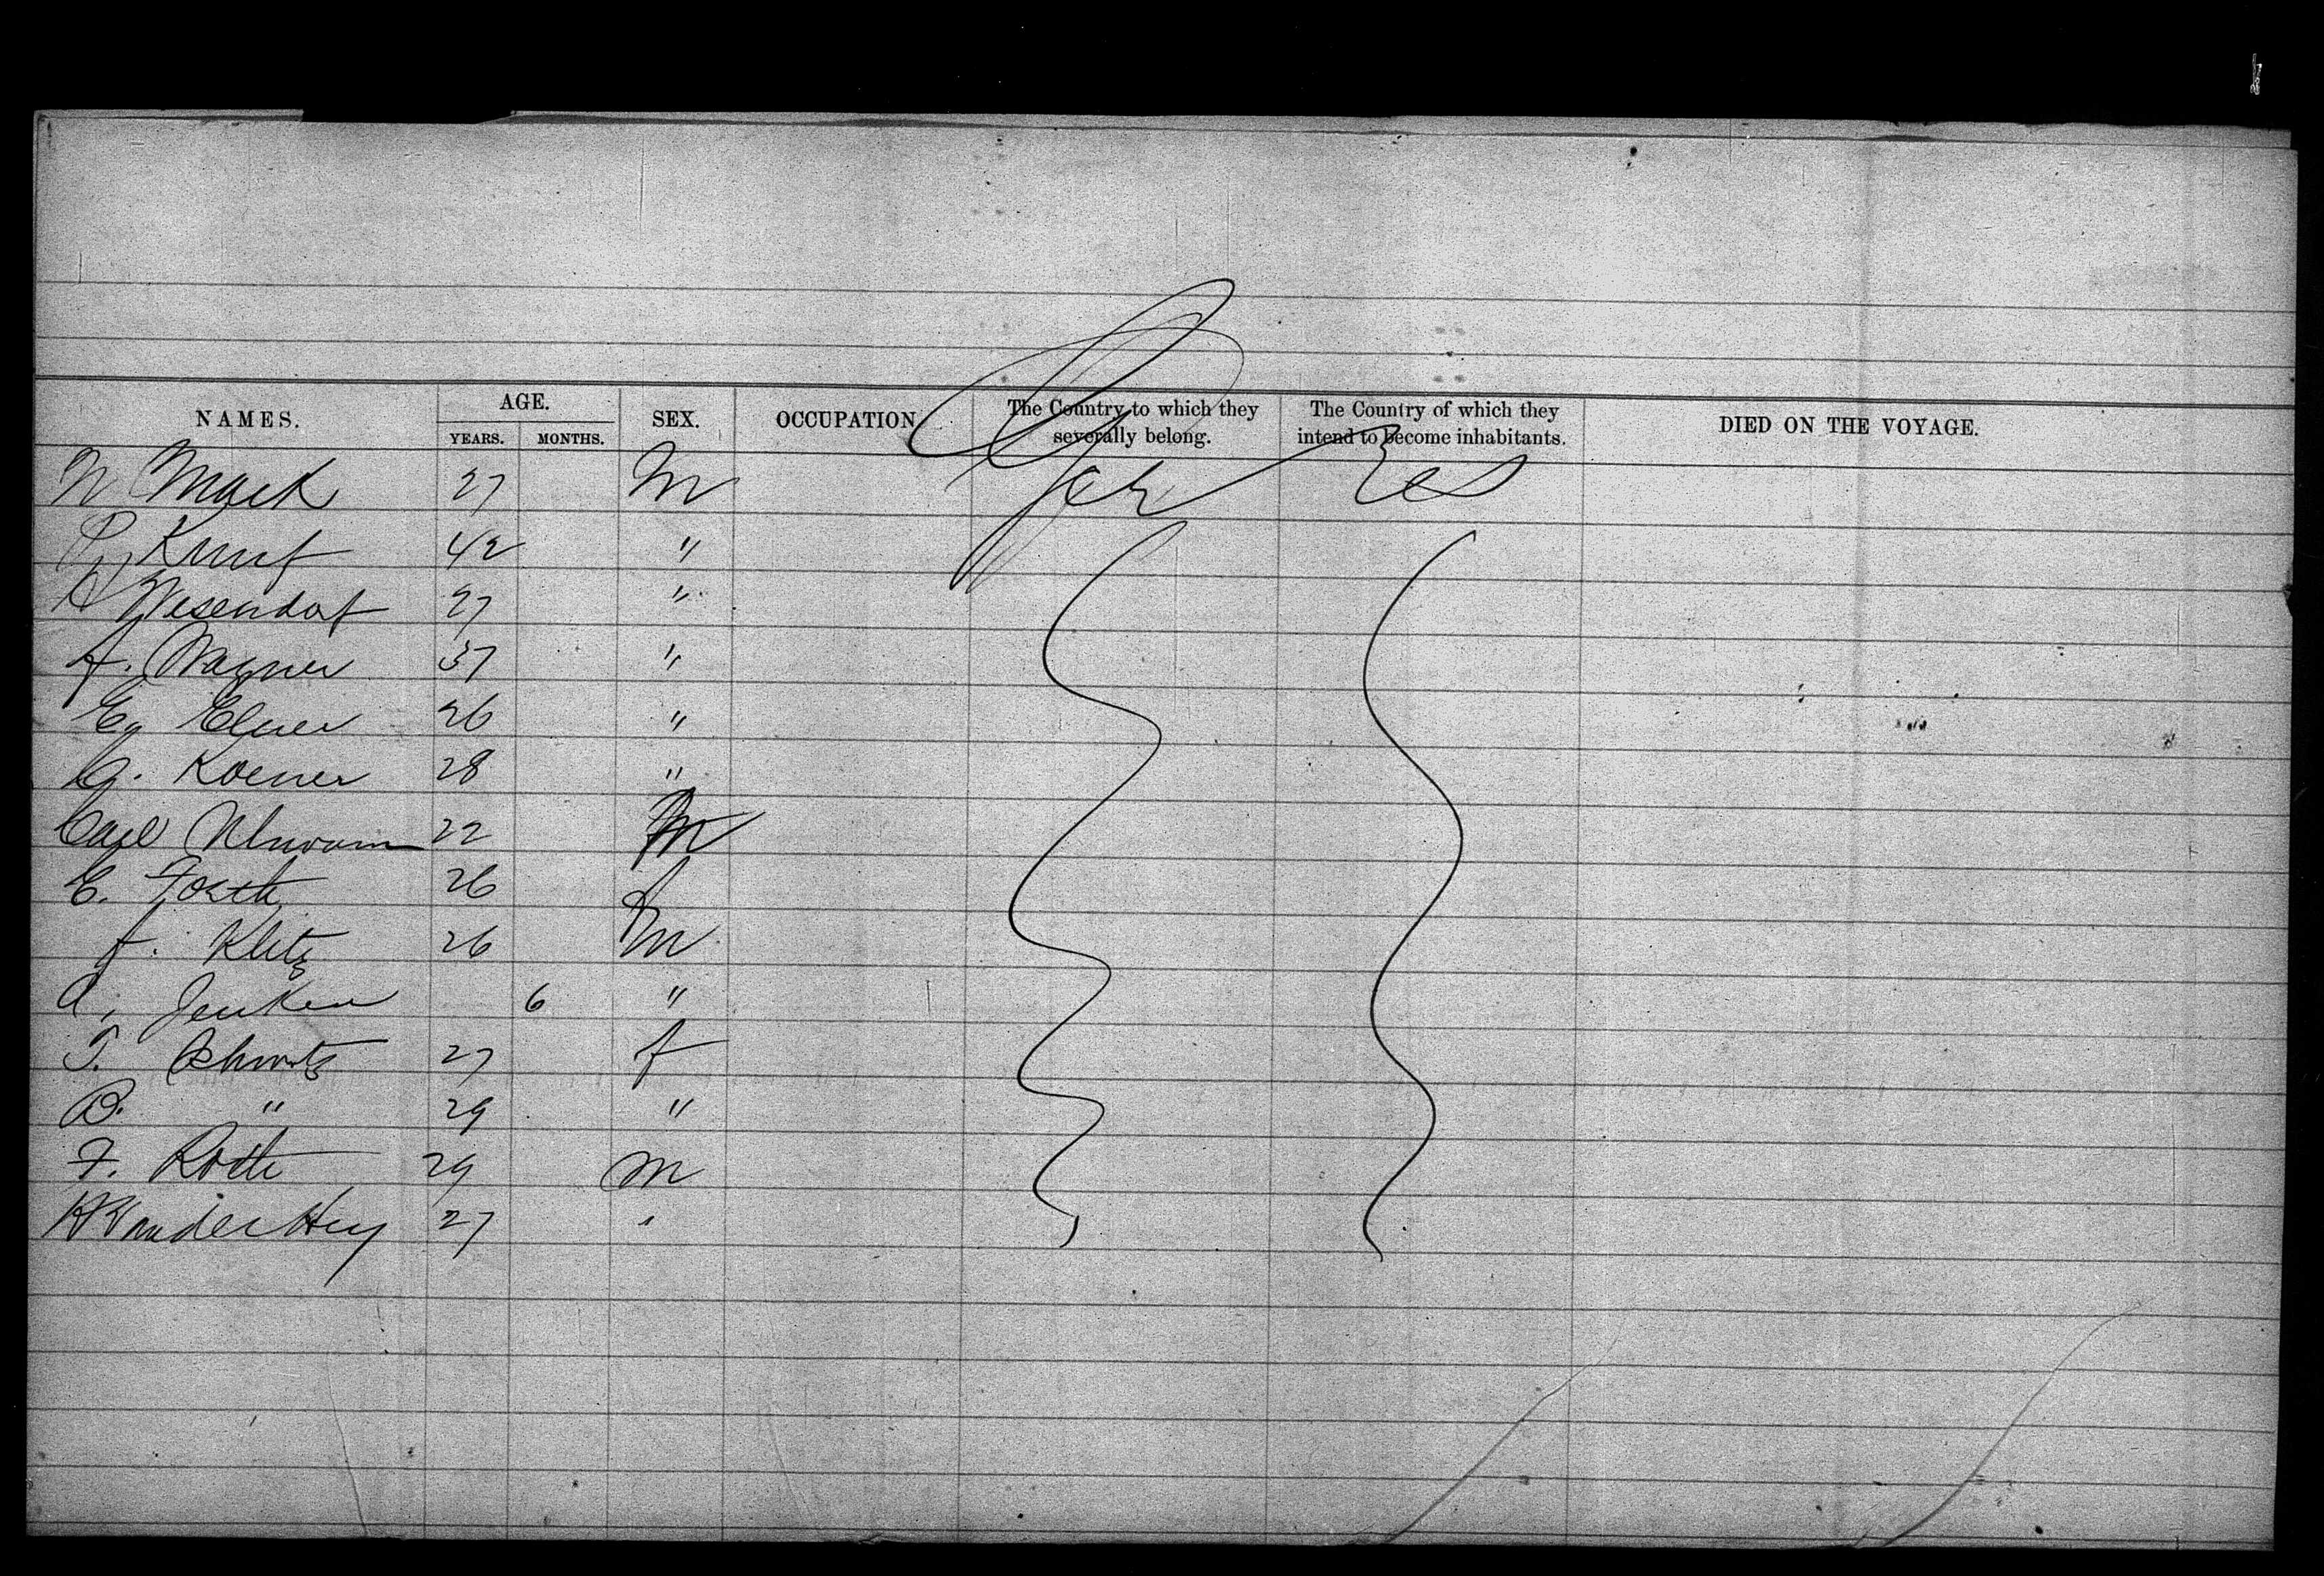 NAMES. AGE. SEX. OCCUPATION. The Country to which they severally belong. The Country of which they intend to become inhabitants. DIED ON THE VOYAGE.
YEARS. MONTHS.
N Mack 27 M Yes
42 "
A Wesendorf 27 "
f. Wagner 37 "
26 "
G. Koener 28 "
Carl 22 M
E. 26 f
f. Klitz 26 M
A. Jenken 6 "
T. Schwartz 27 f
B. " 29 "
F. Rothe 29 M
H Vander Hey 27 "